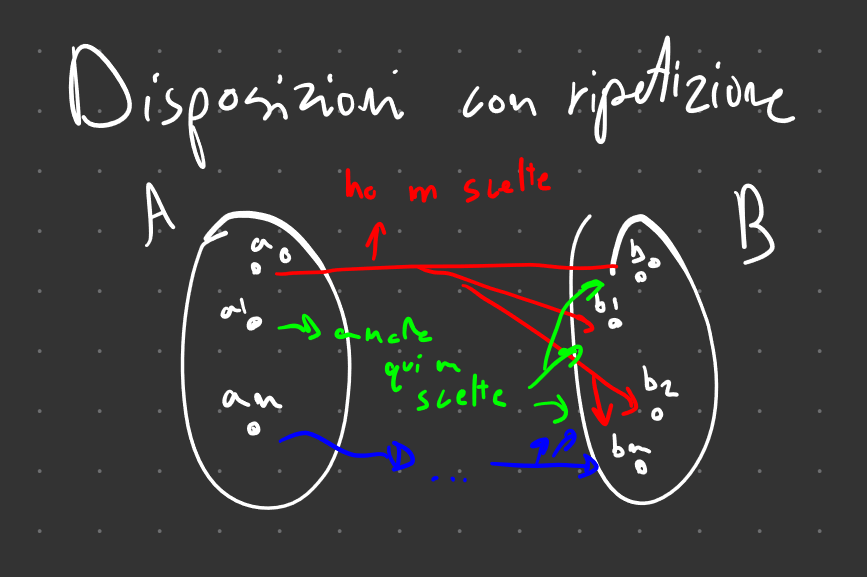 Disposizioni con ripetizione
ho m scelte
A
B
a0
b0
a1
b1
anche
qui m
scelte
an
b2
bm
...